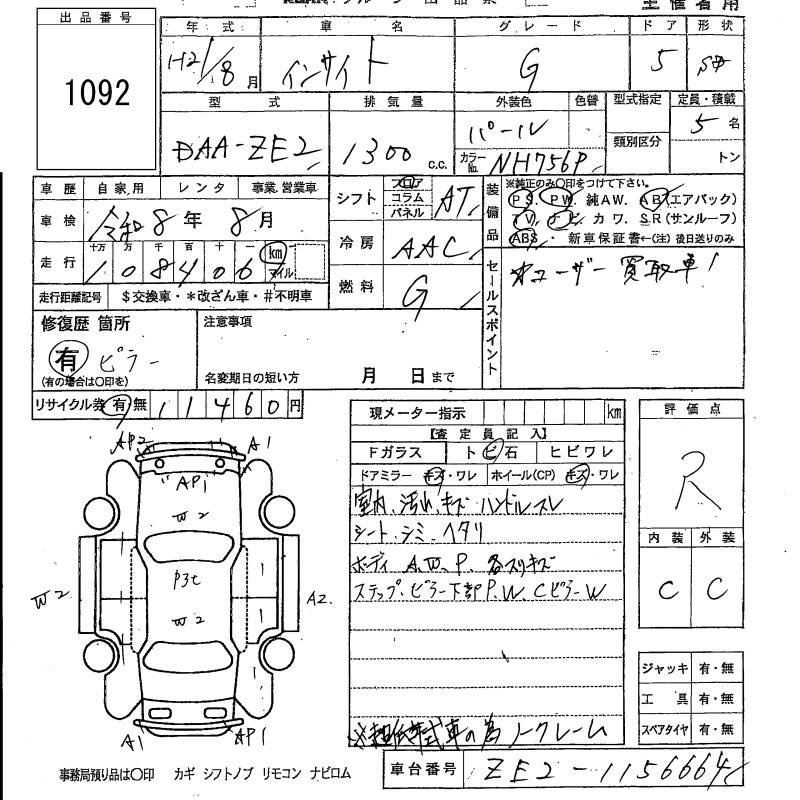 出品番号
1092
主催者用
年式 車名 グレード ドア 形状
H21/8月 インサイト G 5
型式 排気量 外装色 色替 型式指定 定員・積載
DAA-ZE2 1300 c.c. パール 類別区分 5名
カラーNo. NH756P トン
車歴 自家用 レンタ 事業、営業車
車検 令和8年8月
走行 十万 万 千 百 十 一
108406 km マイル
走行距離記号 $交換車・*改ざん車・#不明車
シフト フロア コラム パネル AT
冷房 AAC
燃料 G
装備品
※純正のみ〇印をつけて下さい。
PS. PW. 純AW. AB(エアバック)
TV. ナビ. カワ. SR(サンルーフ)
ABS. 新車保証書←(注)後日送りのみ
セールスポイント
オーユーザー買取車!
修復歴 箇所
有 ピラー
(有の場合は〇印を)
注意事項
名変期日の短い方 月 日まで
リサイクル券 有 無 11460円
現メーター指示 km
【査定員記入】
Fガラス トビ石 ヒビワレ
ドアミラー キズ・ワレ ホイール(CP) キズ・ワレ
室内、汚れ、キズ ハンドルスレ
シート、シミ、ヘタリ
ボディ A.W.P. 各スリキズ
ステップ、ピラー下部P.W. CピラーW
ノークレーム
評価点
R
内装 外装
C C
ジャッキ 有・無
工具 有・無
スペアタイヤ 有・無
AP2 A1
AP1
W2
P3t
W2 A2
W2
A1 AP1
事務局預り品は〇印 カギ シフトノブ リモコン ナビロム
車台番号 ZE2-1156664